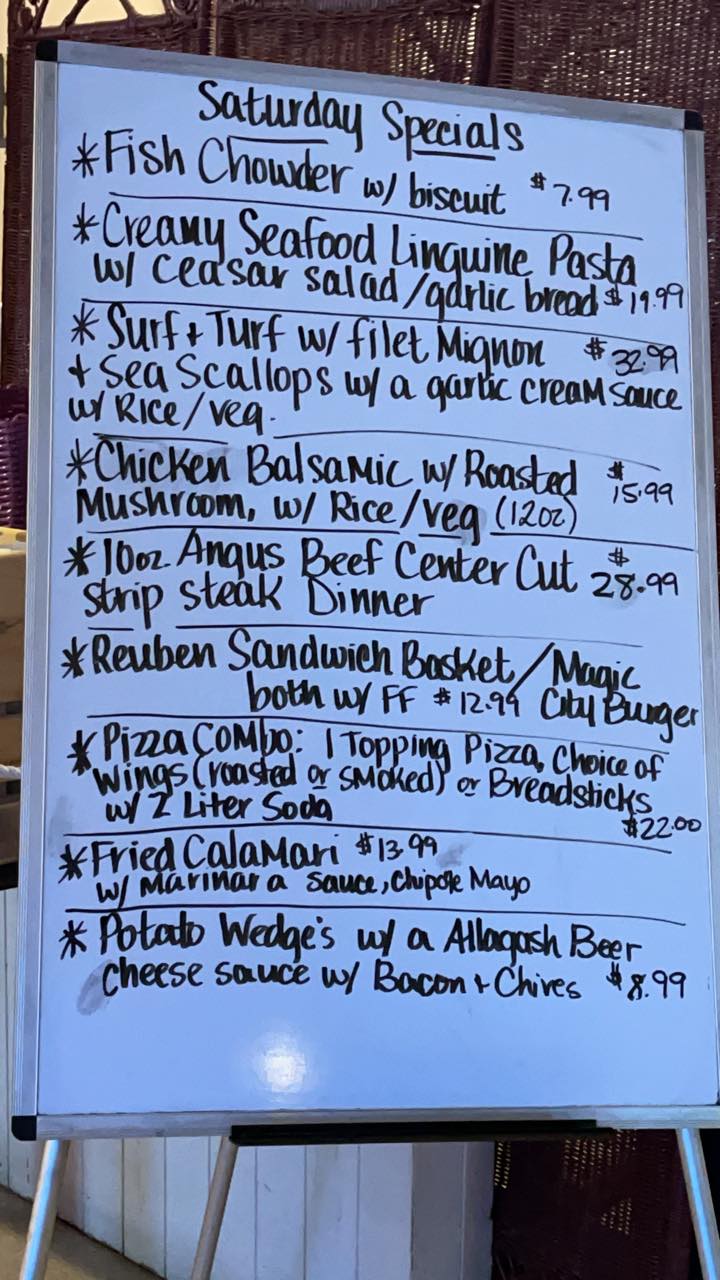 Saturday Specials
*Fish Chowder w/ biscuit $7.99
*Creamy Seafood Linguine Pasta
w/ Ceasar salad/garlic bread $19.99
*Surf + Turf w/ filet Mignon $32.99
+ Sea Scallops w/ a garlic cream sauce
w/ Rice/veg.
*Chicken Balsamic w/ Roasted $15.99
Mushroom, w/ Rice/veg (12oz)
*10oz. Angus Beef Center Cut $28.99
strip steak Dinner
*Reuben Sandwich Basket/Magic
both w/ FF $12.99 City Burger
*Pizza Combo: 1 Topping Pizza, Choice of
Wings (roasted or smoked) or Breadsticks
w/ 2 Liter Soda
$22.00
*Fried Calamari $13.99
w/ Marinara sauce, Chipotle Mayo
*Potato Wedge's w/ a Allagash Beer
cheese sauce w/ Bacon + Chives $8.99